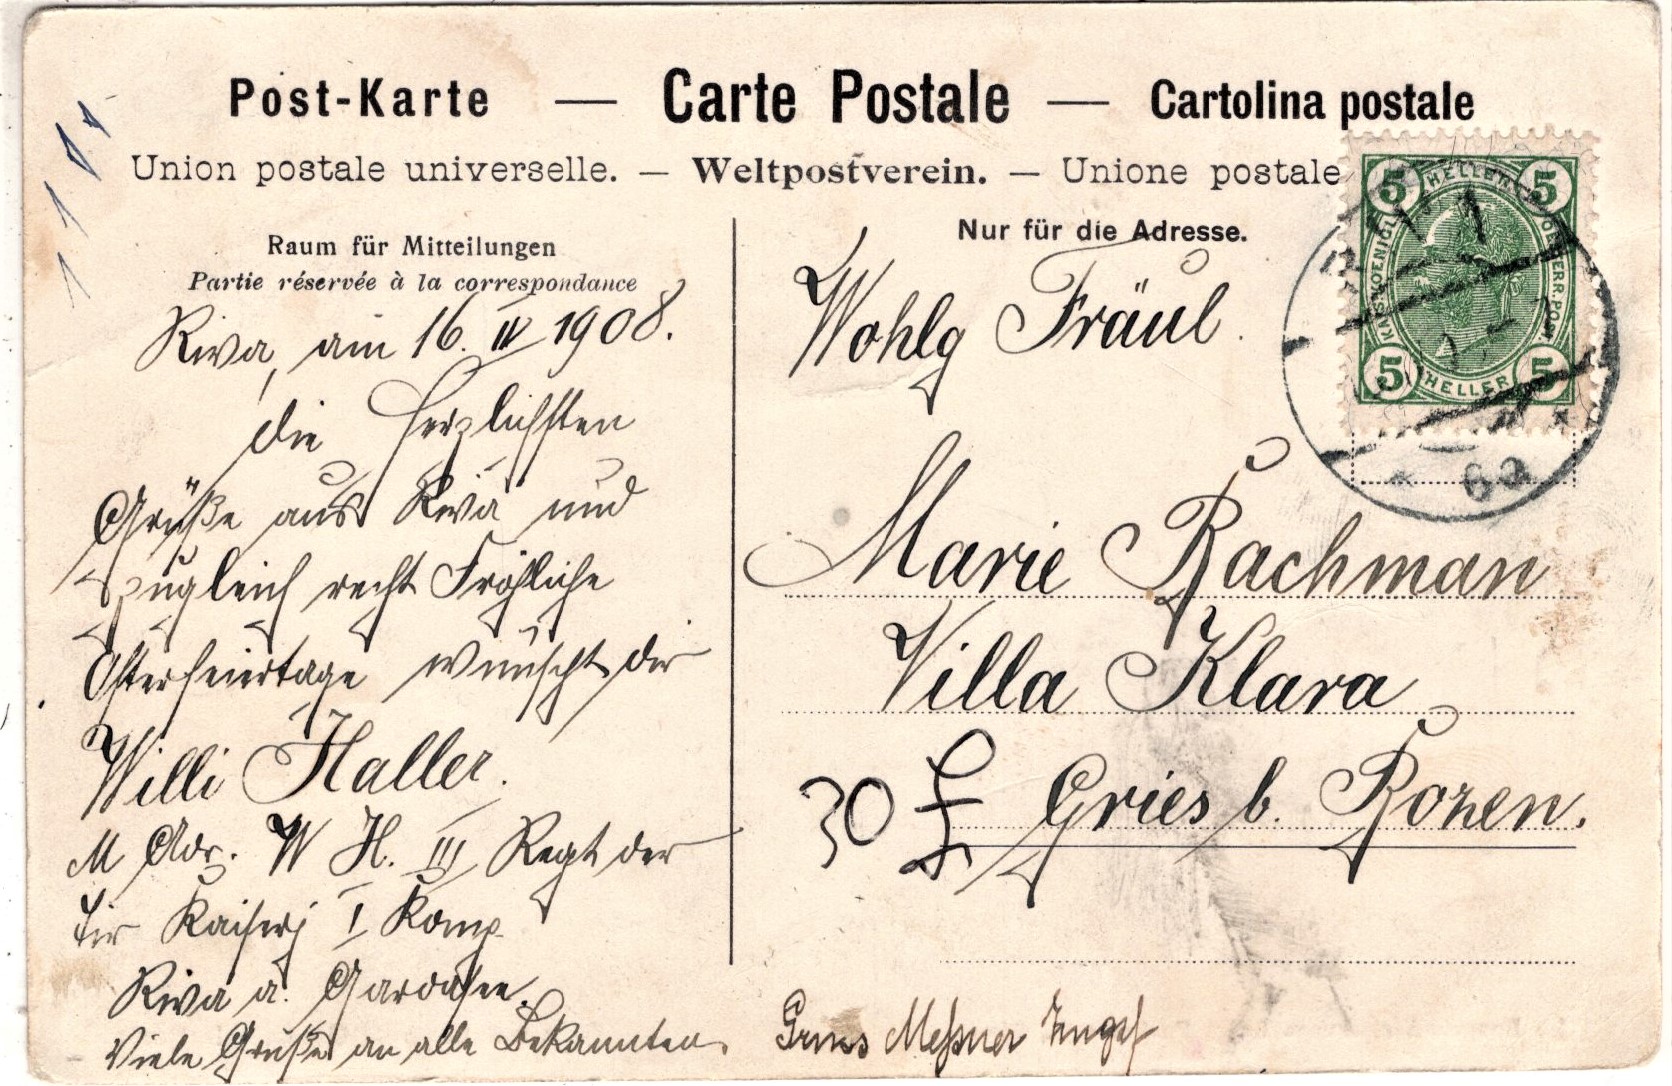 Post-Karte — Carte Postale — Cartolina postale
Union postale universelle. — Weltpostverein. — Unione postale
Raum für Mitteilungen
Partie réservée à la correspondance
Nur für die Adresse.
Riva, am 16. IV 1908.
die herzlichsten
Grüße aus Riva und
zugleich recht Fröhliche
Osterfeiertage wünscht der
Willi Haller.
M Adr. W H. III Regt der
Tir Kaiserj I Komp
Riva a. Gardasee.
Viele Grüße an alle Bekannten.
Wohlg Fräul.
Marie Bachman
Villa Klara
Gries b. Bozen.
30
Gruss Meßner
5 HELLER 5
5 HELLER 5
RIVA
6a